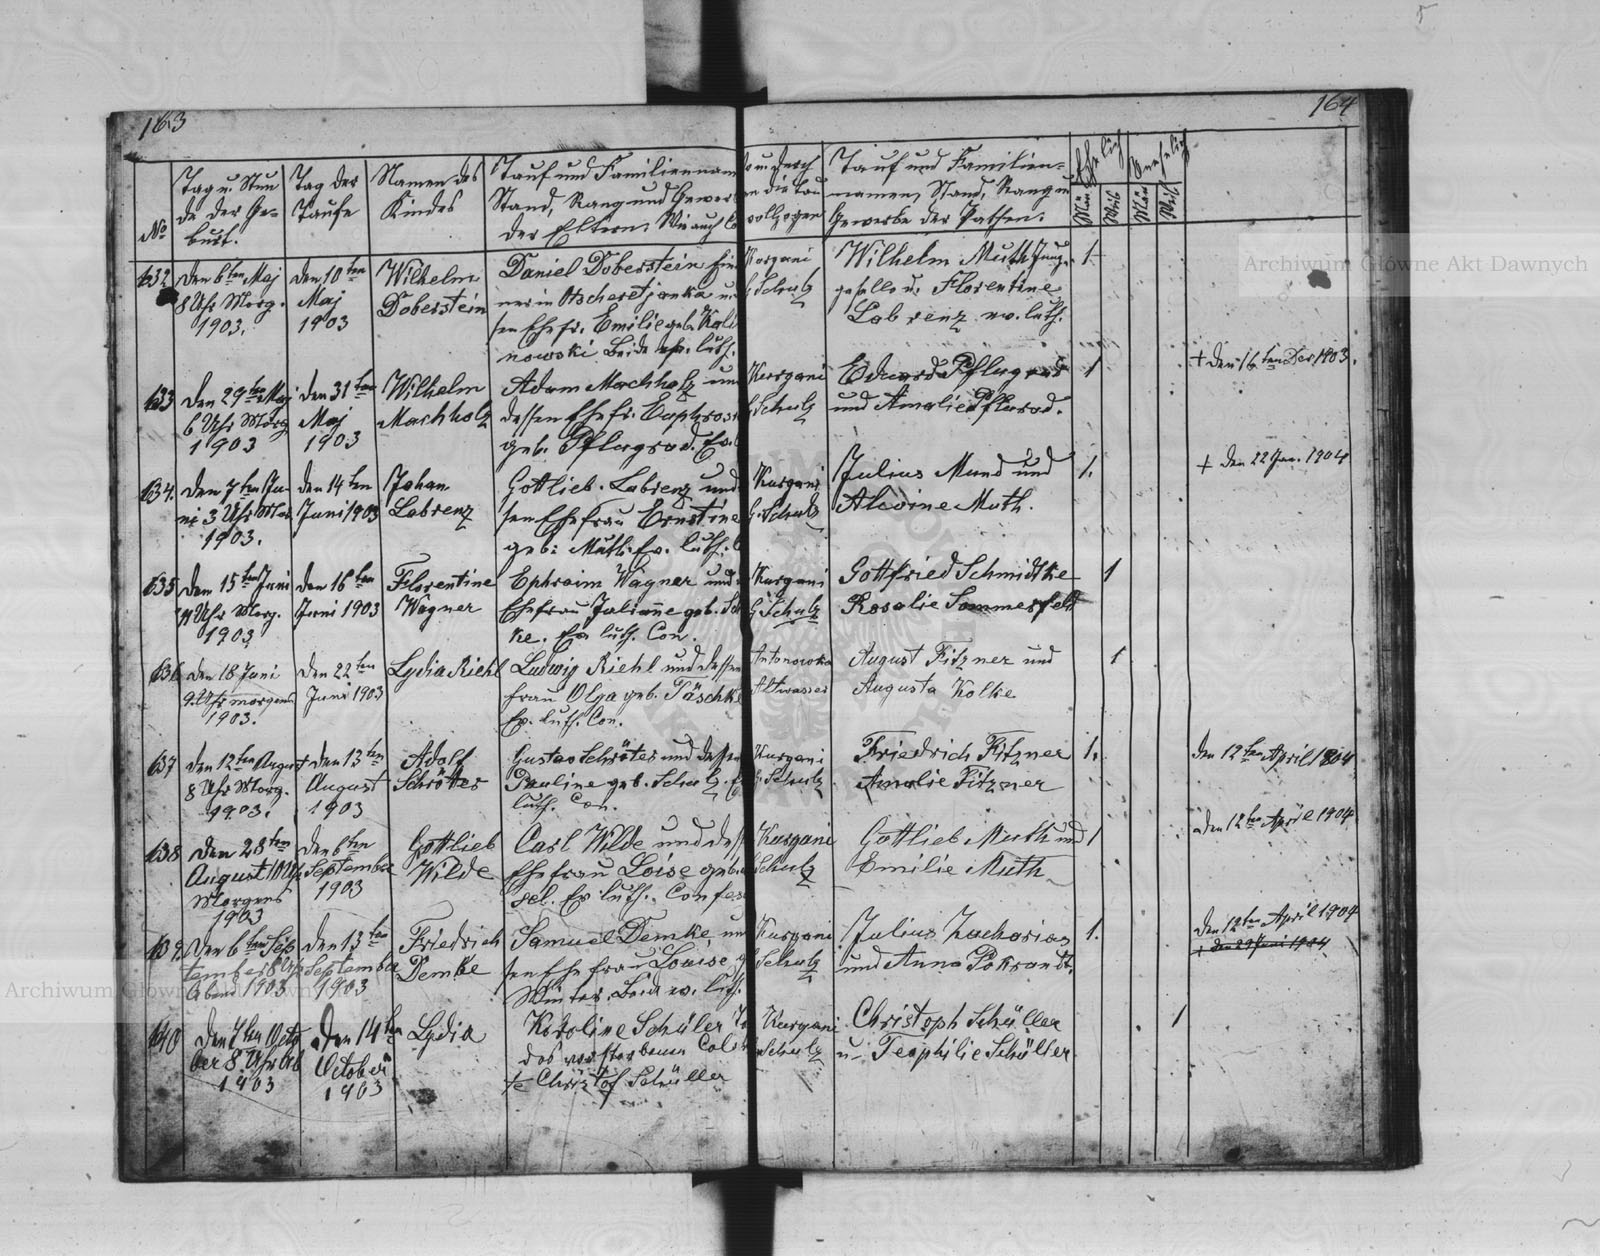 163
164
No
Tag u. Stun
de der Ge-
burt.
Tag der
Taufe
Namen des
Kindes
Tauf und Familiennam
Stand, Rang und Gewer
der Eltern, Wie auch Co
durch
die Tau
vollzogen
Tauf und Familien-
namen, Stand, Rang u
Gewerbe der Pathen.
Ehelich
Unehelich
Män
Weib
Män
Weib
632
den 6ten Maj
8 Uhr Morg.
1903.
den 10ten
Maj
1903
Wilhelm
Doberstein
Daniel Doberstein
ner in
sen Ehefr. Emilie geb. Kali
nowski Beide ev. luth.
Kurgani
G. Schulz
Wilhelm Muth Jung-
geselle u. Florentine
Labrenz ev. luth.
1.
633
den 29ten Maj
6 Uhr Morg
1903
den 31ten
Maj
1903
Wilhelm
Machholz
Adam Machholz und
dessen Ehefr. Euphrosi
geb. Pflugrad. Ev.
Kurgani
G. Schulz
Eduard Pflugrad
und Amalie Pflurad.
1
+ den 16ten Dec 1903.
634.
den 7ten Ju-
ni 3 Uhr Mor
1903.
den 14ten
Juni 1903
Johan
Labrenz
Gottlieb Labrenz und
sen Ehefrau Ernstine
geb: Muth. Ev. luth.
Kurgani
G. Schulz
Julius Mund und
Alwine Muth.
1.
+ den 22 Jan. 1904
635
den 15ten Juni
11 Uhr Morg.
1903
den 16ten
Juni 1903
Florentine
Wagner
Ephraim Wagner und
Ehefrau Julianne geb. Sch
ke. Ev luth. Con.
Kurgani
G. Schulz
Gottfried Schmidtke
Rosalie Sommerfeld
1
636
den 18 Juni
9 Uhr morgens
1903.
den 22ten
Juni 1903
Lydia Riehl
Ludwig Riehl und dessen
frau Olga geb. Täschke
Ev. luth. Con.
Antonowka
Altwasser
August Fitzner und
Augusta Kolke
1
637
den 12ten August
8 Uhr Morg.
1903.
den 13ten
August
1903
Adolf
Schröter
Gustav Schröter und dessen
Pauline geb. Schulz. E
luth. Con.
Kurgani
G. Schulz
Friedrich Fitzner
Amalie Fitzner
1.
den 12ten April 1904
638
den 28ten
August 10 Uhr
Morgens
1903
den 6ten
September
1903
Gottlieb
Wilde
Carl Wilde und dess
Ehefrau Loise geb.
Ev. luth. Confes
Kurgani
Schulz
Gottlieb Muth und
Emilie Muth
1
den 12ten April 1904
639.
den 6ten Sep
tember 8 Uhr
Abend 1903
den 13ten
September
1903
Friedrich
Demke
Samuel Demke, un
sen Ehefrau Louise g
Winter. Beide ev. luth.
Kurgani
Schulz
Julius Zacharias
und Anna Pokrandt.
1.
den 12ten April 1904
+ den 29 Juni 1904
640
den 7ten Octo
ber 8 Uhr Ab
1903
den 14ten
October
1903
Lydia
Karoline Schüler To
des verstorbenen Colo
Christof Schüller
Kurgani
Schulz
Christoph Schüller
u. Teophilie Schüller
1
Archiwum Główne Akt Dawnych
Archiwum Główne Akt Dawnych